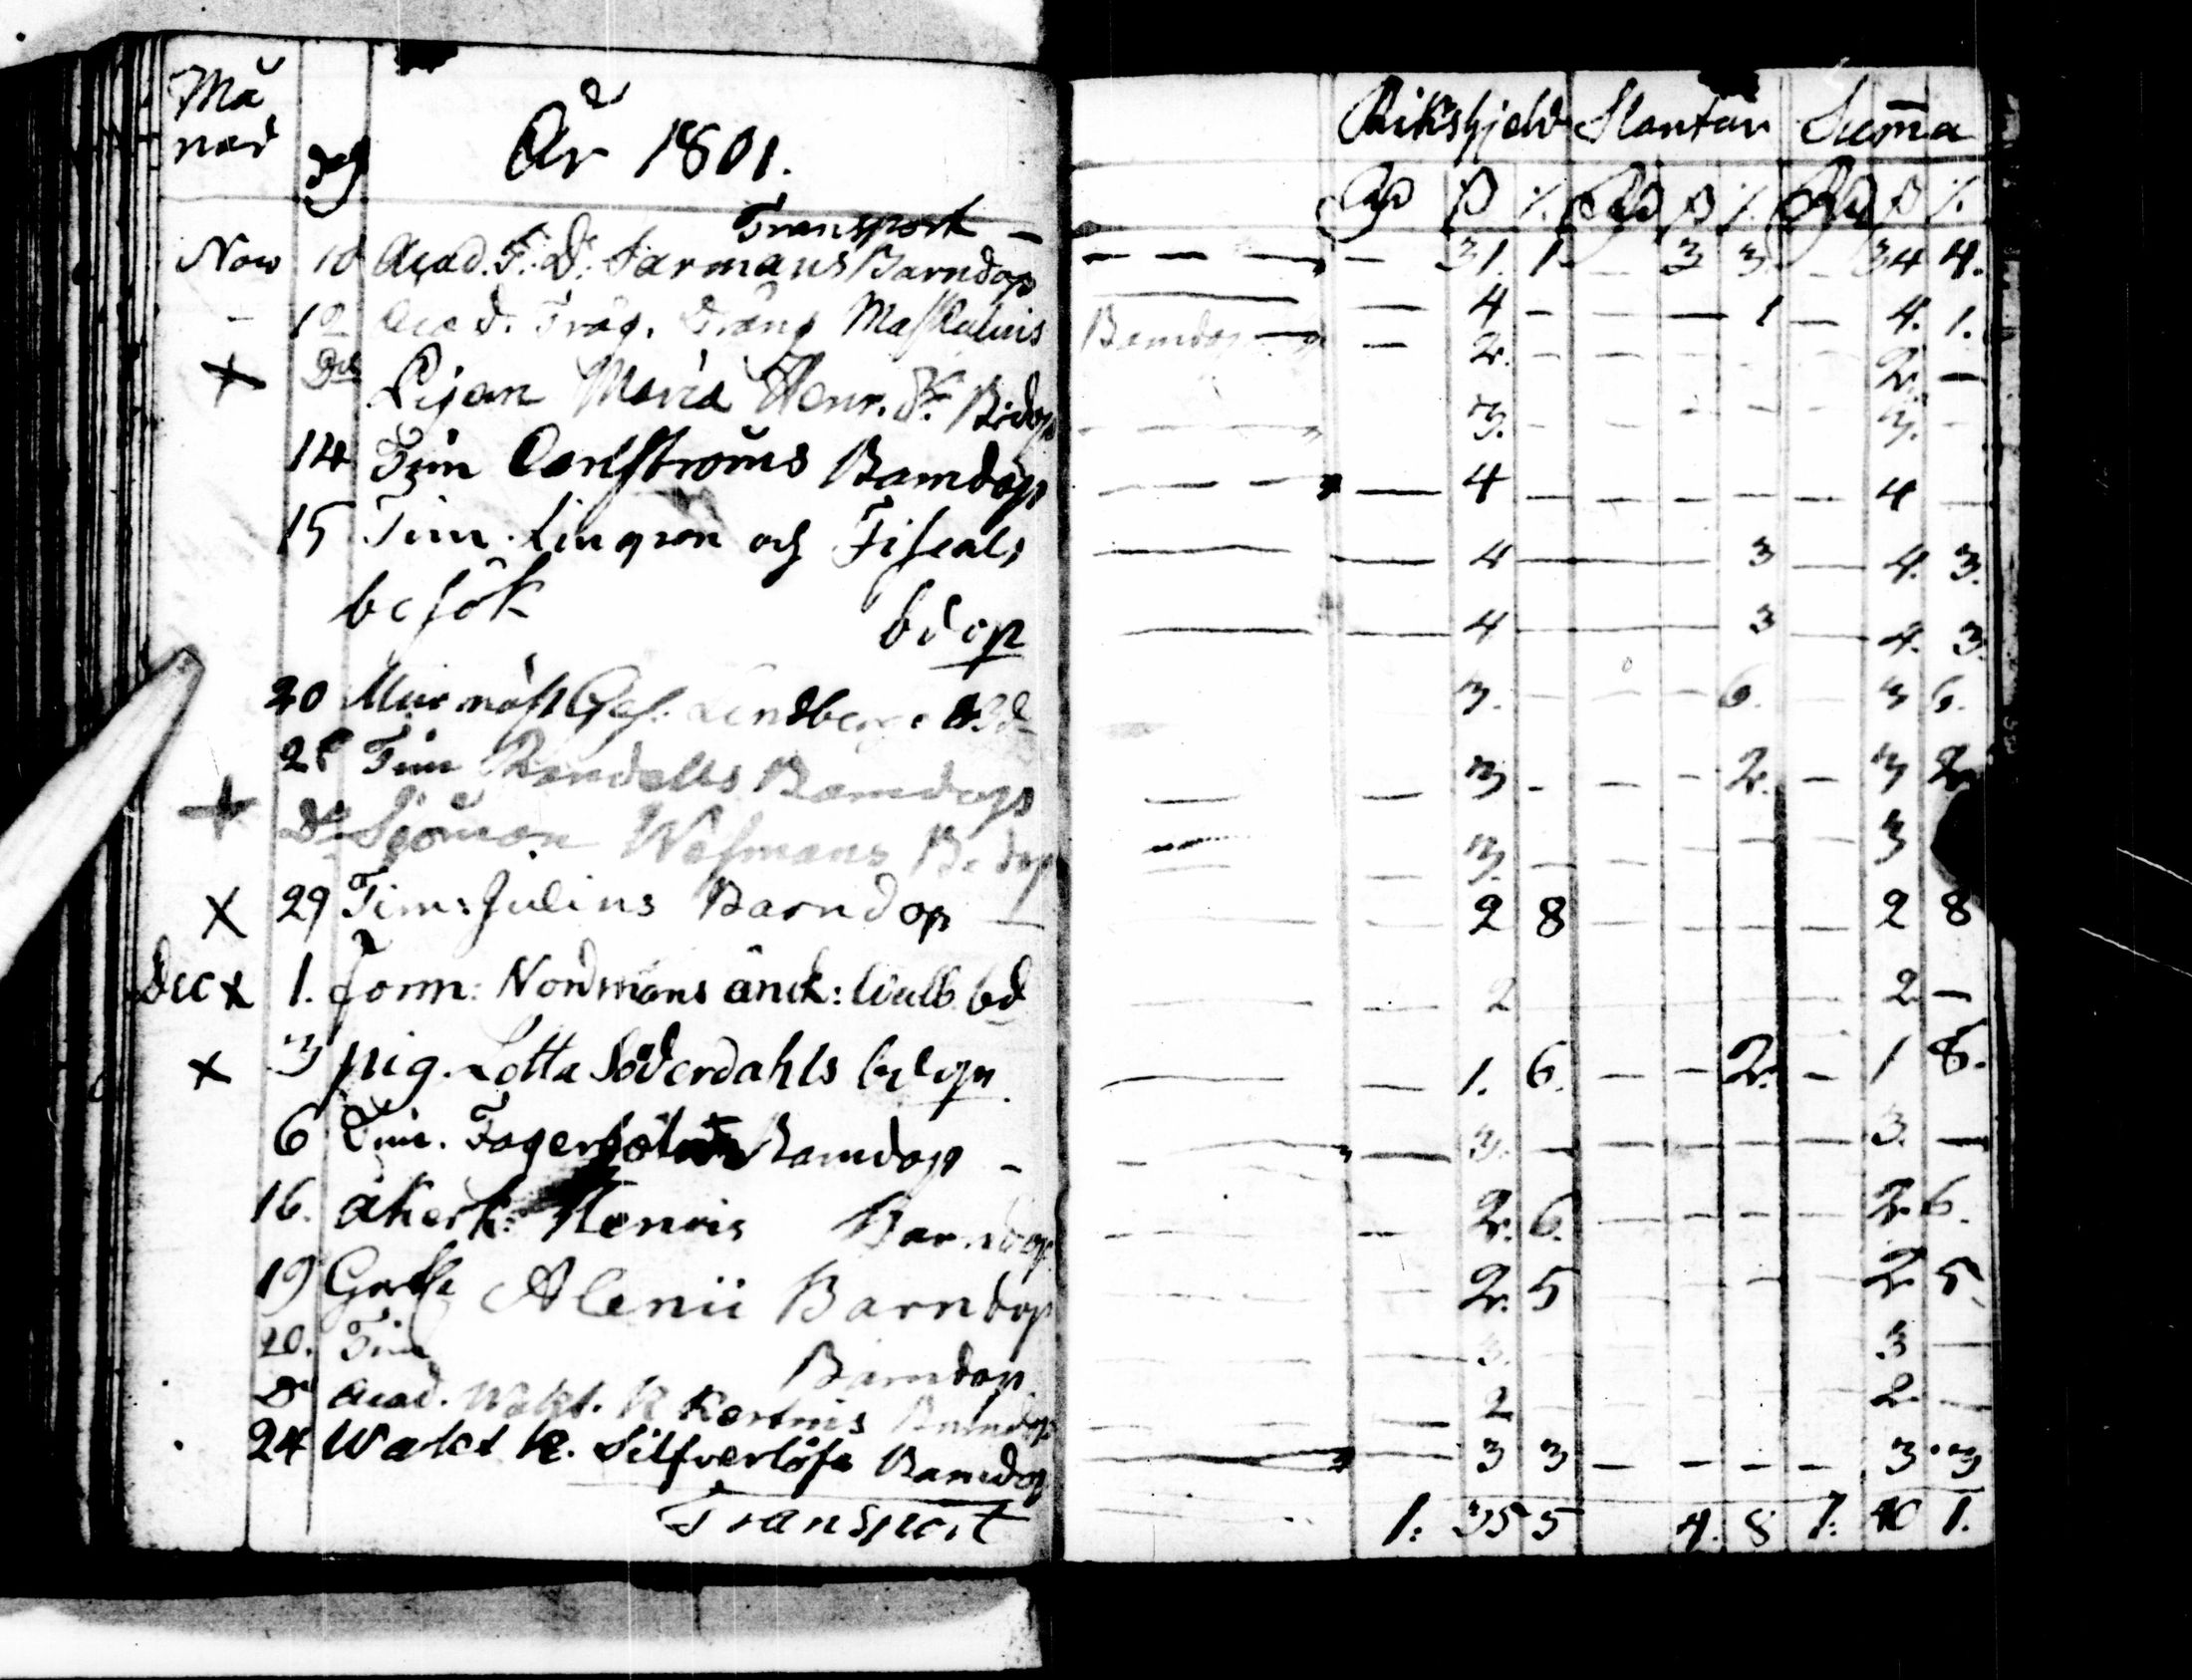 Må
nad dag År 1801. Riksgjeld Slantar Sum̄a
Rd ß /. Rd ß /. Rd ß /.
Transport — — — — — 31. 1 — 3 3 — 34 4.
Nov 10 Acad. F: D: Sarmans Barndop — — 4 — — — 1 — 4. 1.
– 12 Acad. Träg. Dräng Barndop — — 2. – – – – 2. —
+ Do Pigan Maria Henr. Bdop – – – 3. – – – – 3. –
14 Tim Carlströms Barndop — — — 4 — – – – – 4 —
15 Tim. Lingren och Fiscals — — 4 — 3 — 4. 3.
besök bdop — — 4 — 3 — 4. 3.
20 Mur mäst Ges. Lindberg 3. – – – 6. — 3 6.
Tim Rendells Barndop — — 3 – – – 2. – 3 2
+ Do Sjöman Wesmans Bdop — — 3. – – – – – 3
X 29 Tim: Julius Barndop — — 2 8 – – – – 2 8
Dec x 1. Nordmans änck: bd — 2 2 —
x 3 pig. Lotta Söderdahls bdop — — 1. 6. – – 2. – 1 8.
6 Tim. Barndop – – — 3. – – – – – 3. —
16. åkerk: Henris Barndop – – – 2. 6. – – – – 2. 6.
19 Alenii Barndop — 2. 5 – – 2. 5
20. Tim Barndop — — 3. 3 —
Do Acad. Wakt. K Barndop — — 2 2. —
24 Wakt K. Silfverlöfs Barndop — — 3 3 – – – – 3. 3
Transport 1: 35 5 4. 8 1: 40 1.